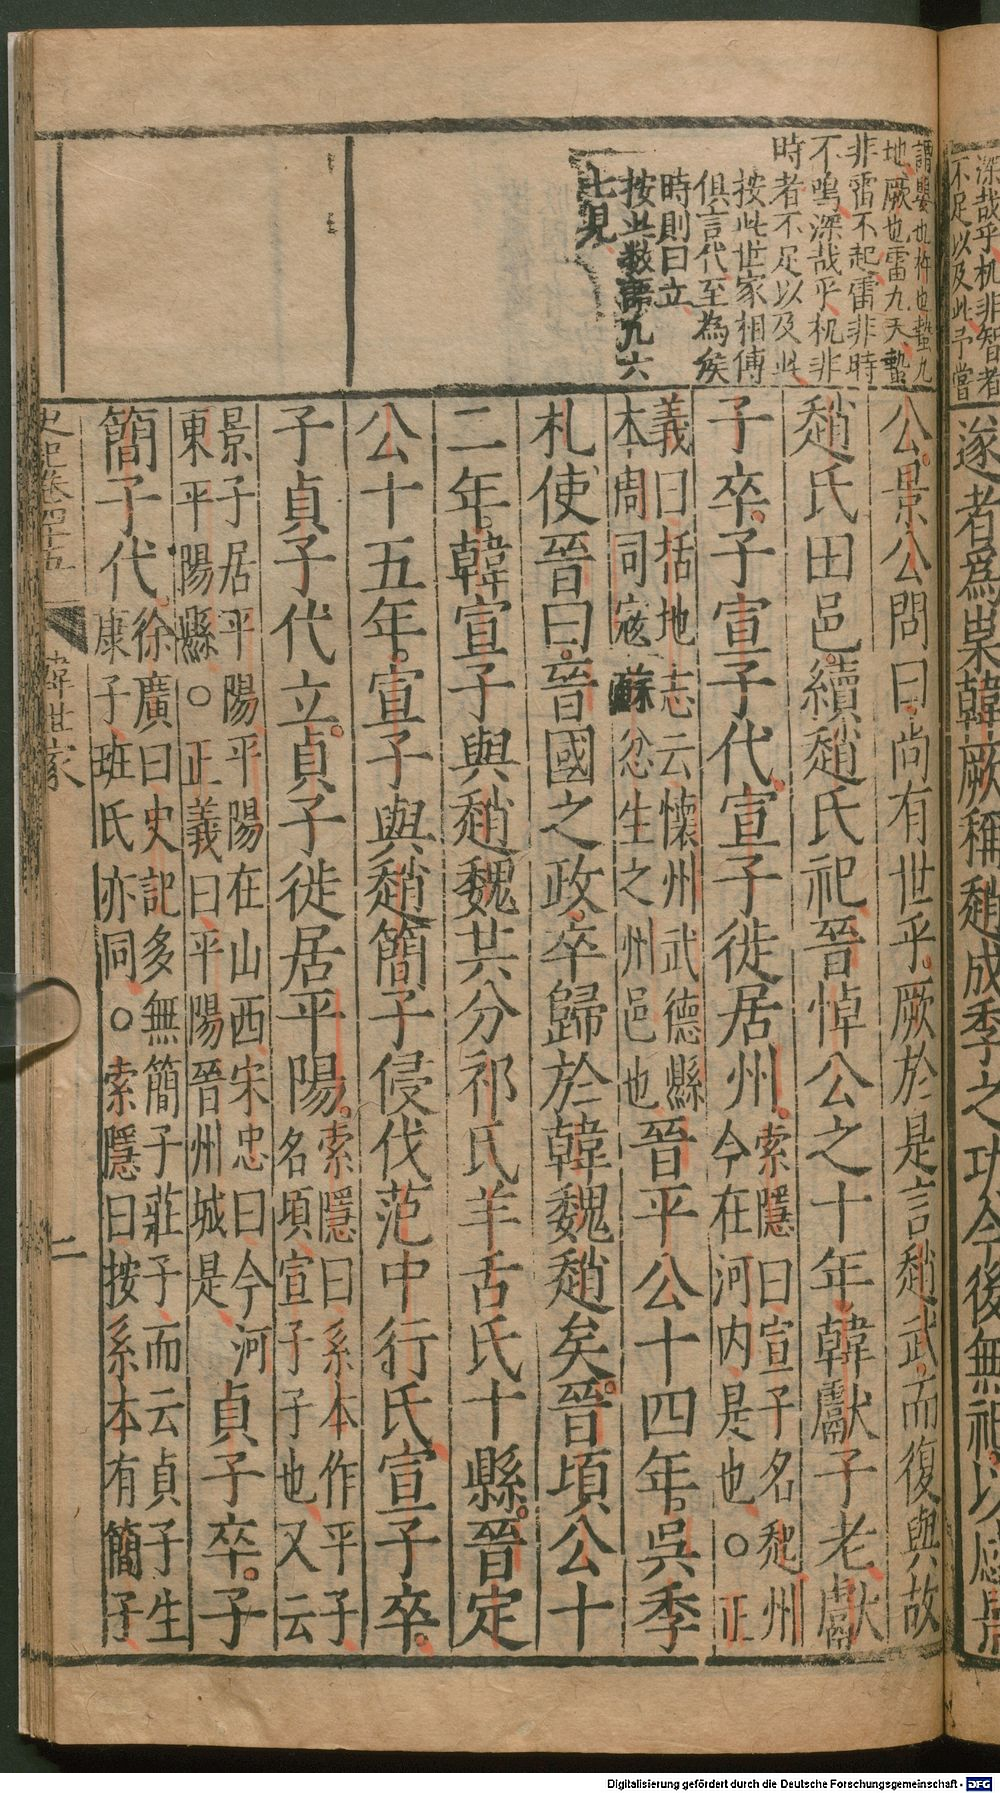 深哉乎机非智者
不足以及此予嘗
遂者爲祟韓厥稱趙成季之功今後無祀以感景
謂嬰也杵也蟄九
地厥也雷九天蟄
非雷不起雷非時
不鳴深哉乎机非
時者不足以及此
按此世家相傳
俱言代至為侯
時則曰立
按此數語凡六
七見
公景公問曰尚有世乎厥於是言趙武而復與故
趙氏田邑續趙氏祀晉悼公之十年韓獻子老獻
子卒子宣子代宣子徙居州
索隱曰宣子名秅州
今在河内是也○正
義曰括地志云懷州武德縣
本周司寇蘇忿生之州邑也
晉平公十四年吳季
札使晉曰晉國之政卒歸於韓魏趙矣晉頃公十
二年韓宣子與趙魏共分祁氏羊舌氏十縣晉定
公十五年宣子與趙簡子侵伐范中行氏宣子卒
子貞子代立貞子徙居平陽
索隱曰系本作平子
名頃宣子子也又云
景子居平陽平陽在山西宋忠曰今河
東平陽縣○正義曰平陽晉州城是
貞子卒子
簡子代
徐廣曰史記多無簡子莊子而云貞子生
康子班氏亦同○索隱曰按系本有簡子
史記卷四十五
韓世家
二
Digitalisierung gefördert durch die Deutsche Forschungsgemeinschaft - DFG